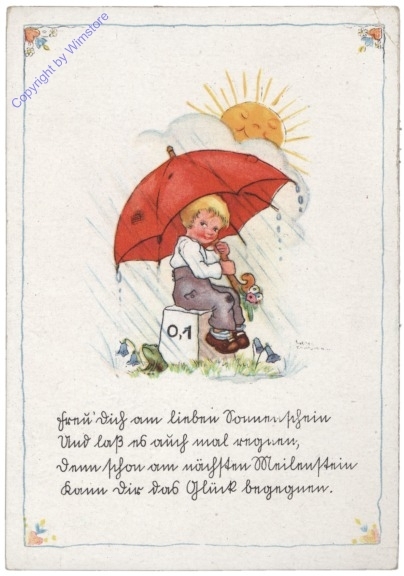 Copyright by Wimstore
0,1
Freu' Dich am lieben Sonnenschein
Und laß es auch mal regnen,
Denn schon am nächsten Meilenstein
Kann Dir das Glück begegnen.